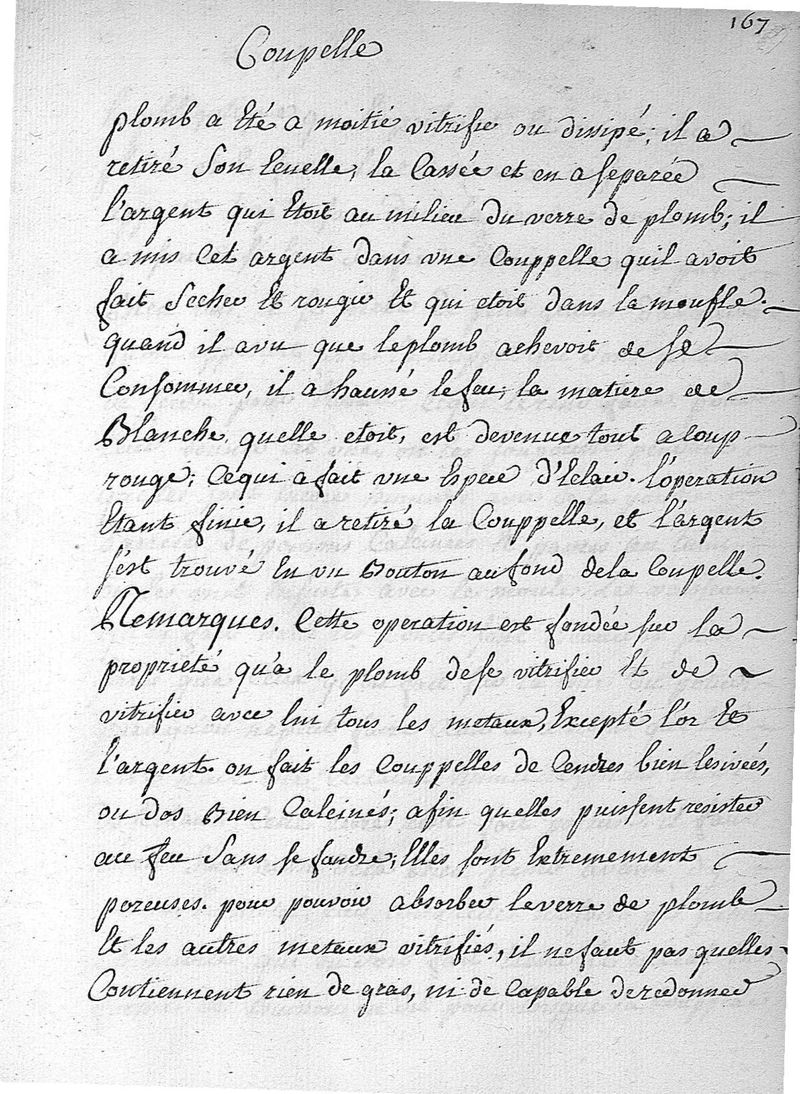 167
Coupelle
plomb a Eté a moitié vitrifie ou dissipé; il a
retiré son Ecuelle, la Cassée et en a separée
l'argent qui Etoit au milieu du verre de plomb; il
a mis Cet argent dans vne Couppelle quil avoit
fait Secher Et rougir Et qui etoit dans la moufle.
quand il a vu que le plomb achevoit de se
Consommer, il a haussé le feu, la matiere de
Blanche quelle etoit, est devenue tout a coup
rouge; Ce qui a fait vne Espece d'Eclair. l'operation
Etant finie, il a retiré la Couppelle, et l'argent
s'est trouvé En vn Bouton au fond de la Coupelle.
Remarques. Cette operation est fondée sur la
proprieté qu'a le plomb de se vitrifier Et de
vitrifier avec lui tous les metaux, Excepté l'or Et
l'argent. on fait les Couppelles de Cendres bien lesivées,
ou dos Bien Calcinés; afin quelles puissent resister
au feu Sans se fondre; Elles sont Extremement
poreuses. pour pouvoir absorber le verre de plomb
Et les autres metaux vitrifiés, il ne faut pas quelles
Contiennent rien de gras, ni de Capable de redonner